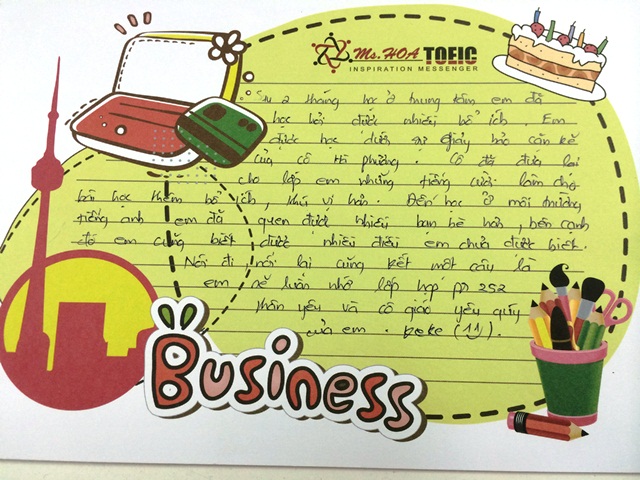 Ms. HOA TOEIC
INSPIRATION MESSENGER
Sau 2 tháng học ở trung tâm em đã
học hỏi được nhiều bổ ích. Em
được học dưới sự giảng bảo cặn kẽ
của cô Hà phương. Cô đã đưa lại
cho lớp em những tiếng cười làm cho
bài học thêm bổ ích, thú vị hơn. Đến học ở môi trường
tiếng anh em đã quen được nhiều bạn bè hơn, bên cạnh
đó em cũng biết được nhiều điều em chưa được biết.
Nói đi nói lại cũng kết một câu là
em sẽ luôn nhớ lớp học pr 252
thân yêu và cô giáo yêu quý
của em. keke (11).
Business